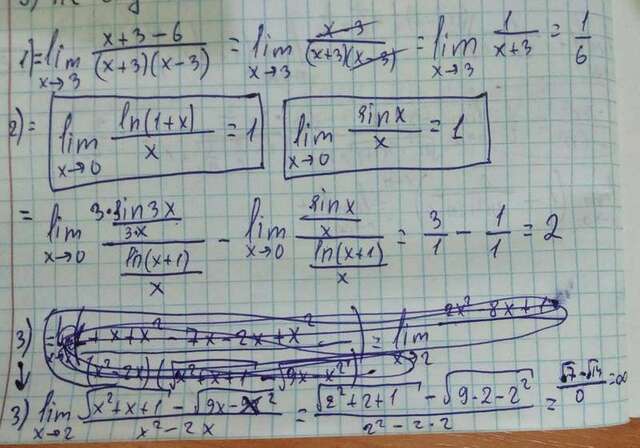 1) = lim x→3 (x+3-6)/((x+3)(x-3)) = lim x→3 (x-3)/((x+3)(x-3)) = lim x→3 1/(x+3) = 1/6
2) = lim x→0 ln(1+x)/x = 1 lim x→0 sinx/x = 1
= lim x→0 (3·sin3x/3·x)/(ln(x+1)/x) - lim x→0 (sinx/x)/(ln(x+1)/x) = 3/1 - 1/1 = 2
3) + x + x² - 7x - 2x + x² = lim x→2 2x² - 8x + 1
(x²-2x)(√x²+x+1 - √9x-x²)
3) lim x→2 (√x²+x+1 - √9x-x²)/(x²-2x) = (√2²+2+1 - √9·2-2²)/(2²-2·2) = (√7-√14)/0 = ∞